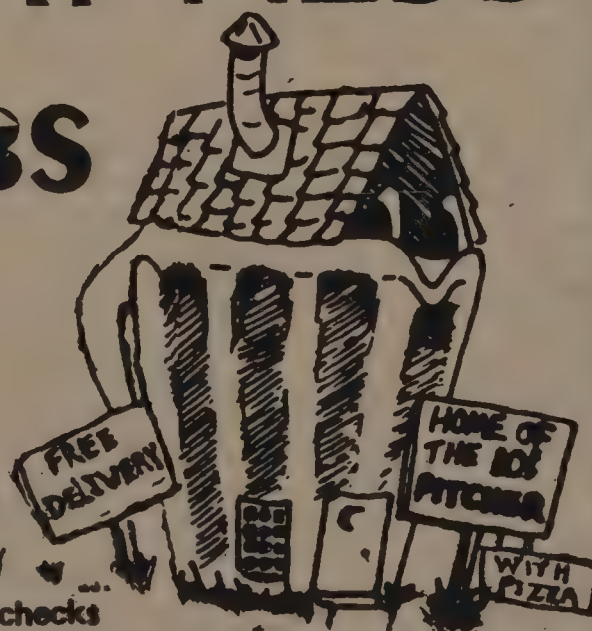 FREE
DELIVERY
HOME OF
THE 10¢
PITCHER
WITH
PIZZA
checks